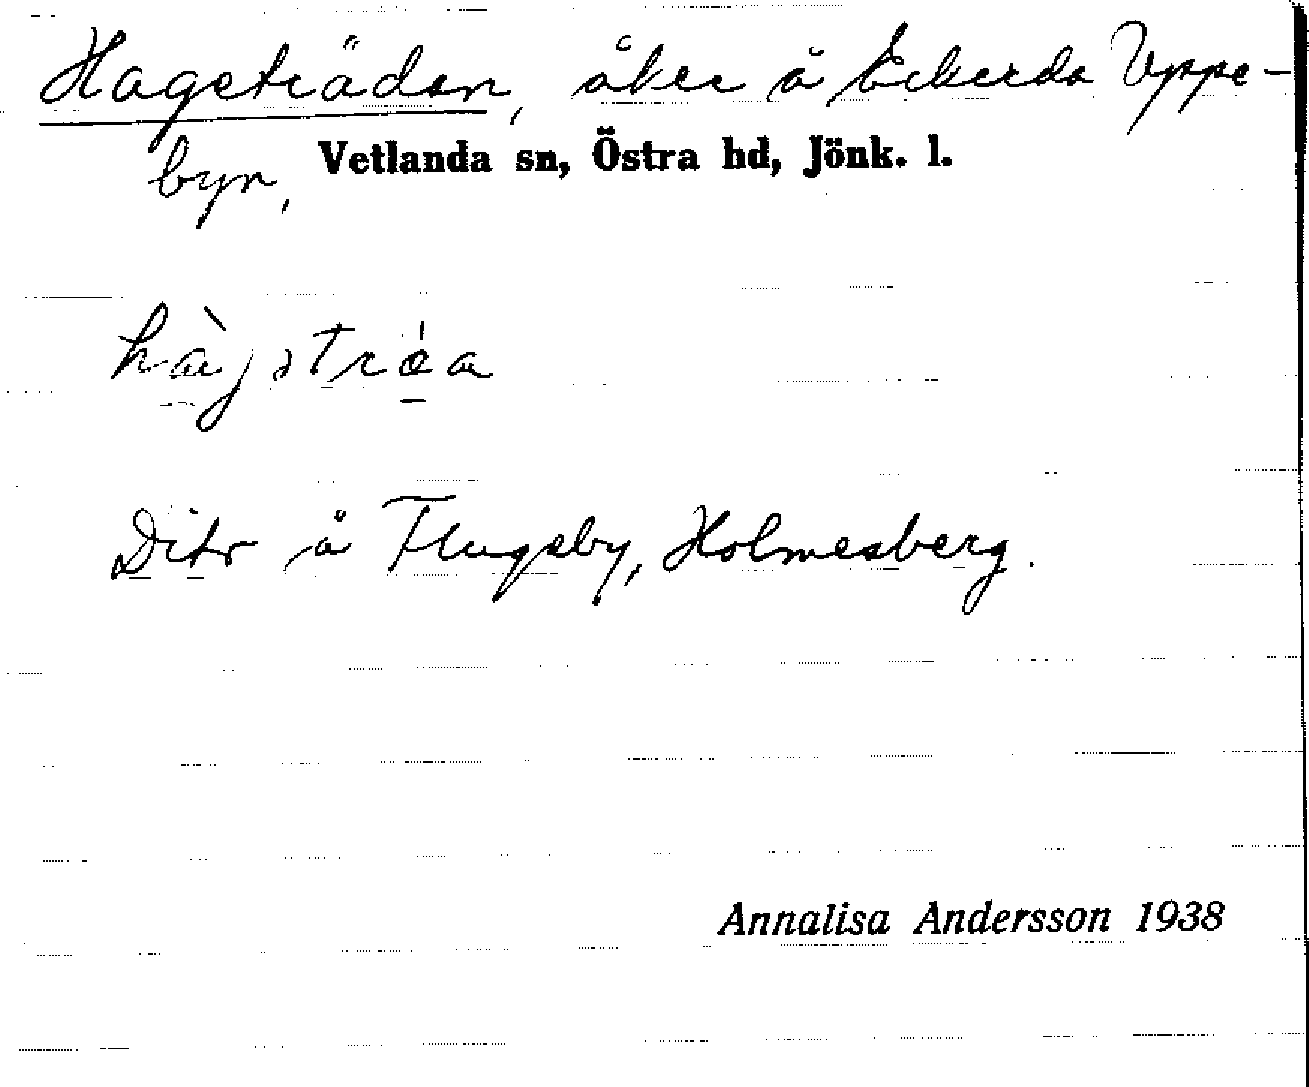 Hagsträdan, åker å Eckerda Uppe-
byn,
Vetlanda sn, Östra hd, Jönk. l.
Dito å Flugeby, Holmesberg.
Annalisa Andersson 1938